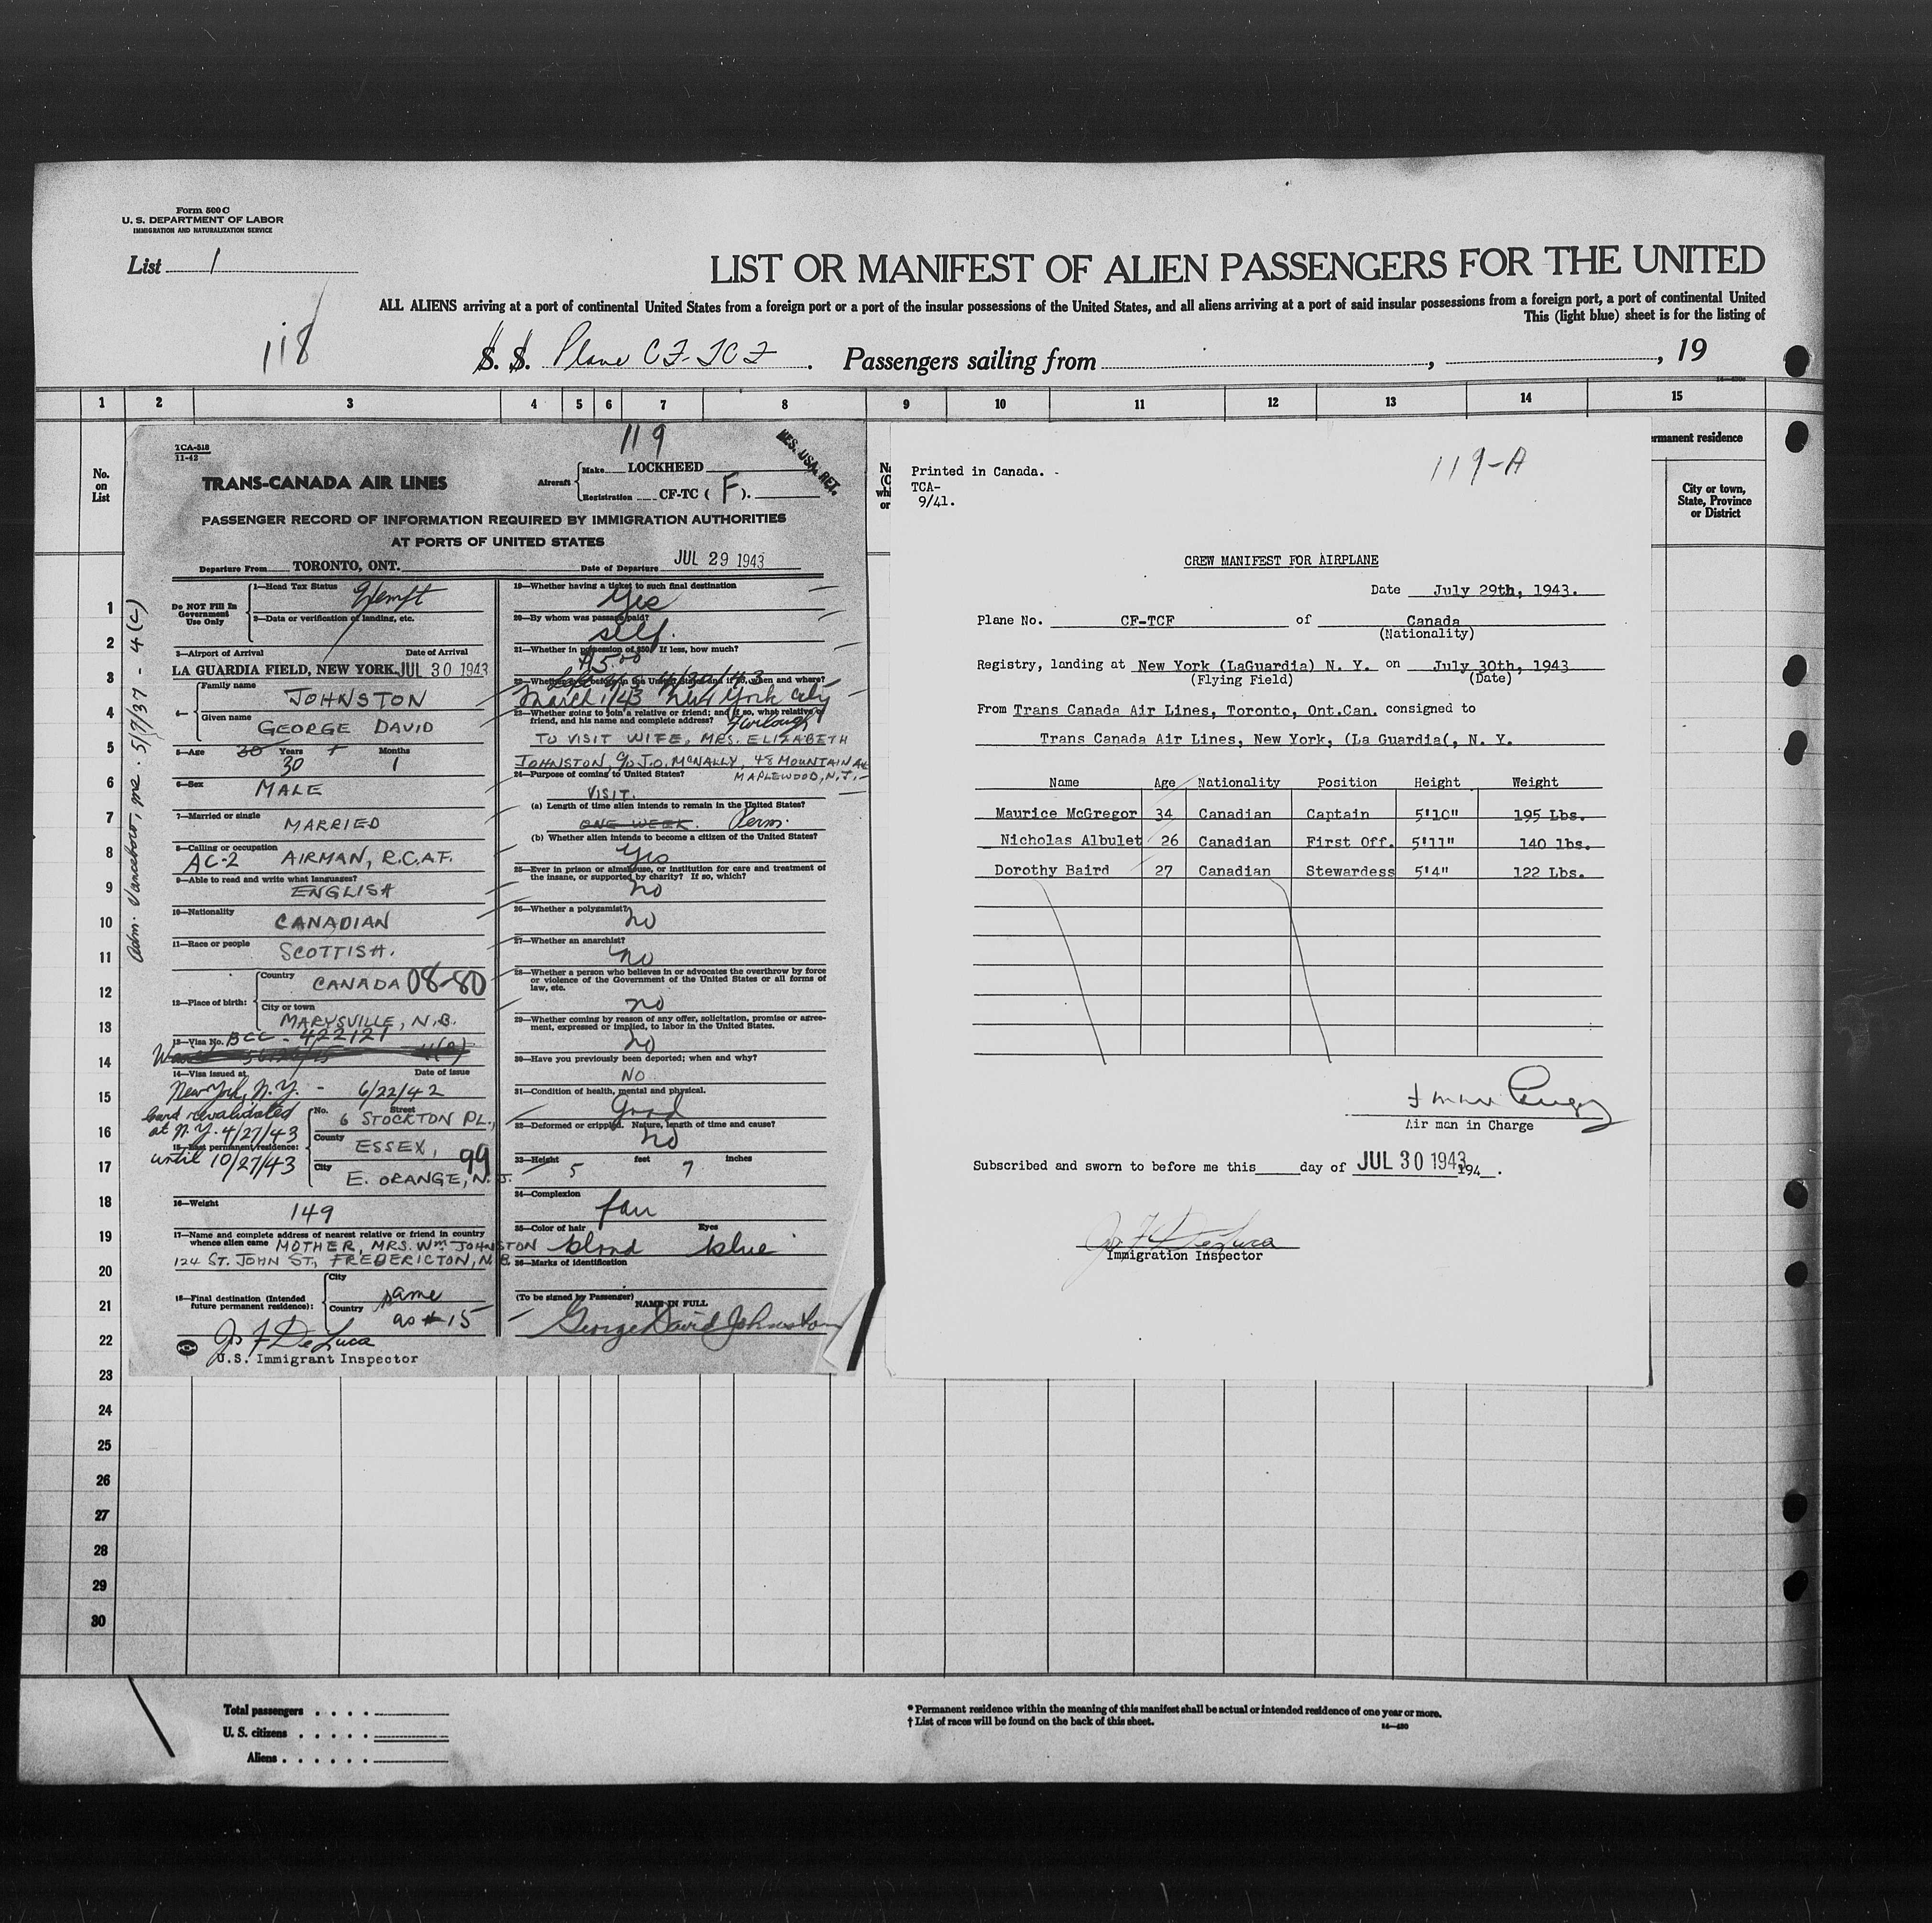 Form 500C
U. S. DEPARTMENT OF LABOR
IMMIGRATION AND NATURALIZATION SERVICE
List 1
LIST OR MANIFEST OF ALIEN PASSENGERS FOR THE UNITED
ALL ALIENS arriving at a port of continental United States from a foreign port or a port of the insular possessions of the United States, and all aliens arriving at a port of said insular possessions from a foreign port, a port of continental United
This (light blue) sheet is for the listing of
118
S. S. Plane CF-TCF. Passengers sailing from , , 19
1 2 3 4 5 6 7 8 9 10 11 12 13 14 15
No. on List
ermanent residence
City or town, State, Province or District
TCA-518
11-42
119
RES. USA. RET.
TRANS-CANADA AIR LINES
Aircraft
Make LOCKHEED
Registration CF-TC ( F ).
PASSENGER RECORD OF INFORMATION REQUIRED BY IMMIGRATION AUTHORITIES
AT PORTS OF UNITED STATES
Departure From TORONTO, ONT. Date of Departure JUL 29 1943
Adm. Vanceboro, me. 5/7/37 - 4(c)
Do NOT Fill In Government Use Only
1—Head Tax Status Exempt
2—Data or verification of landing, etc.
3—Airport of Arrival Date of Arrival
LA GUARDIA FIELD, NEW YORK. JUL 30 1943
4— Family name JOHNSTON
Given name GEORGE DAVID
5—Age 30 Years Months
30 1
6—Sex MALE
7—Married or single MARRIED
8—Calling or occupation
AC-2 AIRMAN, R.C.A.F.
9—Able to read and write what languages?
ENGLISH
10—Nationality CANADIAN
11—Race or people SCOTTISH.
12—Place of birth: Country CANADA 08-80
City or town
MARYSVILLE, N.B.
13—Visa No. BCC - 422121
14—Visa issued at Date of issue
New York, N.Y. - 6/22/42
Card revalidated
at N.Y. 4/27/43
until 10/27/43
15—Last permanent residence:
No. Street 6 STOCKTON PL.,
County ESSEX, 99
City E. ORANGE, N.J.
16—Weight 149
17—Name and complete address of nearest relative or friend in country
whence alien came MOTHER, MRS. Wm JOHNSTON
124 ST. JOHN ST., FREDERICTON, N.B.
18—Final destination (Intended future permanent residence):
City same
Country as # 15
Jos F DeLuca
U.S. Immigrant Inspector
19—Whether having a ticket to such final destination
Yes
20—By whom was passage paid?
self.
21—Whether in possession of $50? If less, how much?
22—Whether ever before in the United States and if so, when and where?
March 1/43 New York City
23—Whether going to join a relative or friend; and if so, what relative or
friend, and his name and complete address? Furlough
TO VISIT WIFE, MRS. ELIZABETH
JOHNSTON, C/O J.O. McNALLY, 48 MOUNTAIN AVE
24—Purpose of coming to United States? MAPLEWOOD, N.J.
VISIT.
(a) Length of time alien intends to remain in the United States?
ONE WEEK. Perm.
(b) Whether alien intends to become a citizen of the United States?
Yes
25—Ever in prison or almshouse, or institution for care and treatment of
the insane, or supported by charity? If so, which?
no
26—Whether a polygamist?
no
27—Whether an anarchist?
no
28—Whether a person who believes in or advocates the overthrow by force
or violence of the Government of the United States or all forms of
law, etc.
no
29—Whether coming by reason of any offer, solicitation, promise or agree-
ment, expressed or implied, to labor in the United States.
no
30—Have you previously been deported; when and why?
NO
31—Condition of health, mental and physical.
Good
32—Deformed or crippled. Nature, length of time and cause?
no
33—Height 5 feet 7 inches
34—Complexion
fair
35—Color of hair Eyes
blond blue
36—Marks of identification
(To be signed by Passenger) NAME IN FULL
George David Johnston
Printed in Canada.
TCA-
9/41.
119-A
CREW MANIFEST FOR AIRPLANE
Date July 29th, 1943.
Plane No. CF-TCF of Canada
(Nationality)
Registry, landing at New York (LaGuardia) N. Y. on July 30th, 1943
(Flying Field) (Date)
From Trans Canada Air Lines, Toronto, Ont.Can. consigned to
Trans Canada Air Lines, New York, (La Guardia(, N. Y.
Name Age Nationality Position Height Weight
Maurice McGregor 34 Canadian Captain 5'10" 195 Lbs.
Nicholas Albulet 26 Canadian First Off. 5'11" 140 lbs.
Dorothy Baird 27 Canadian Stewardess 5'4" 122 Lbs.
Air man in Charge
Subscribed and sworn to before me this day of JUL 30 1943 194 .
Jos F DeLuca
Immigration Inspector
1
2
3
4
5
6
7
8
9
10
11
12
13
14
15
16
17
18
19
20
21
22
23
24
25
26
27
28
29
30
Total passengers . . . .
U. S. citizens . . . . .
Aliens . . . . . .
* Permanent residence within the meaning of this manifest shall be actual or intended residence of one year or more.
† List of races will be found on the back of this sheet.